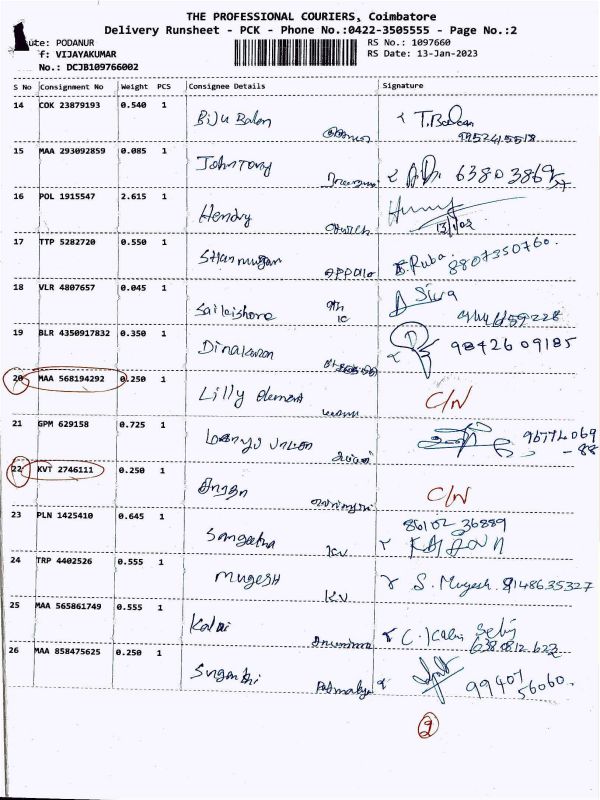 THE PROFESSIONAL COURIERS, Coimbatore
Delivery Runsheet - PCK - Phone No.:0422-3505555 - Page No.:2
ute: PODANUR RS No.: 1097660
f: VIJAYAKUMAR RS Date: 13-Jan-2023
No.: DCJB109766002
S No Consignment No Weight PCS Consignee Details Signature
14 COK 23879193 0.540 1 Biju Balan T. Balan
9952415518
15 MAA 293092859 0.085 1 John Tony
16 POL 1915547 2.615 1 Hendry church
13/1/23
17 TTP 5282720 0.550 1 Shanmugan Appollo Ruba. 8807350760.
18 VLR 4807657 0.045 1 Saikishore Siva
19 BLR 4350917832 0.350 1 Dinakaran 9842609185
20 MAA 568194292 0.250 1 Lilly Clement C/N
21 GPM 629158 0.725 1 95774069
-88
22 KVT 2746111 0.250 1 C/N
86102 36889
23 PLN 1425410 0.645 1 Sangeetha KV
24 TRP 4402526 0.555 1 Mugesh KV S. Mugesh 8148635327
25 MAA 565861749 0.555 1 Kalai
26 MAA 858475625 0.250 1 Suganthi Padmalaya 99407
56060.
2